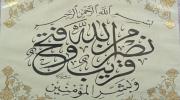 بسم الله الرحمن الرحيم
نصر من الله وفتح قريب
وبشر المؤمنين